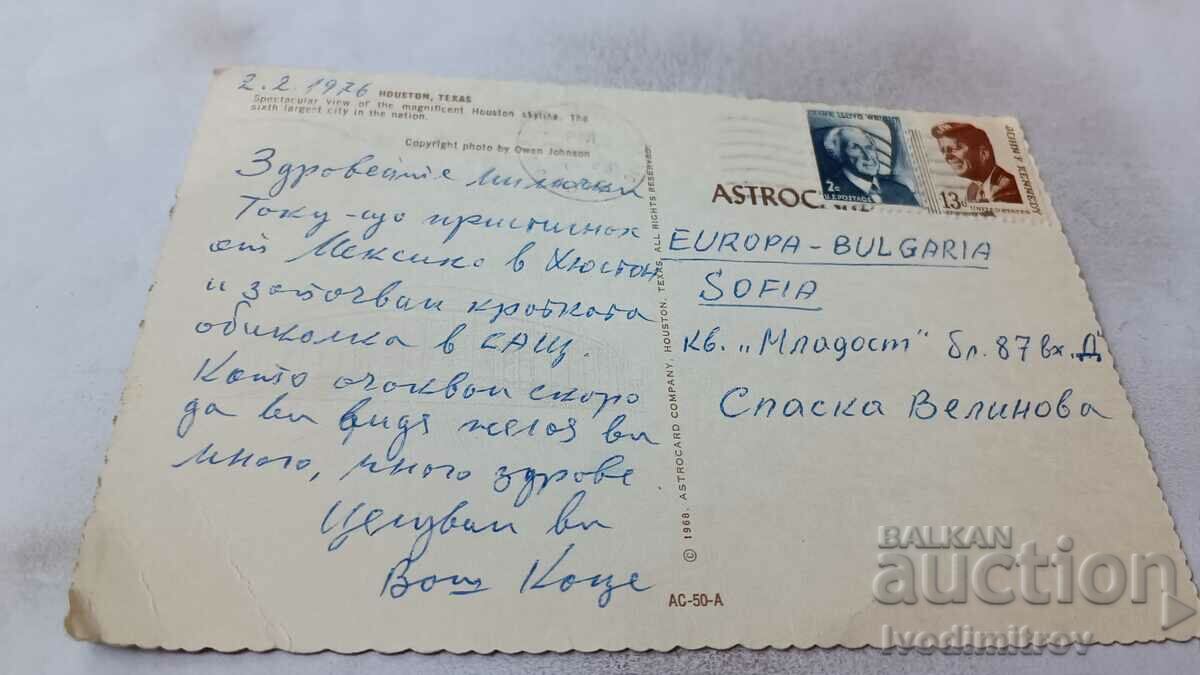 2.2.1976
HOUSTON, TEXAS
Spectacular view of the magnificent Houston skyline. The
sixth largest city in the nation.
Copyright photo by Owen Johnson
Здравейте милички
Току-що пристигнах
от Мексико в Хюстон
и започвам кратката
обиколка в САЩ.
Като очаквам скоро
да ви видя желая ви
много, много здраве
Целувам ви
Ваш Коце
© 1968, ASTROCARD COMPANY, HOUSTON, TEXAS, ALL RIGHTS RESERVED
AC-50-A
ASTROCARD
FRANK LLOYD WRIGHT
2c
U.S. POSTAGE
JOHN F KENNEDY
13c
UNITED STATES
EUROPA - BULGARIA
SOFIA
кв. „Младост" бл. 87 вх. Д
Спаска Велинова
BALKAN
auction
Ivodimitrov